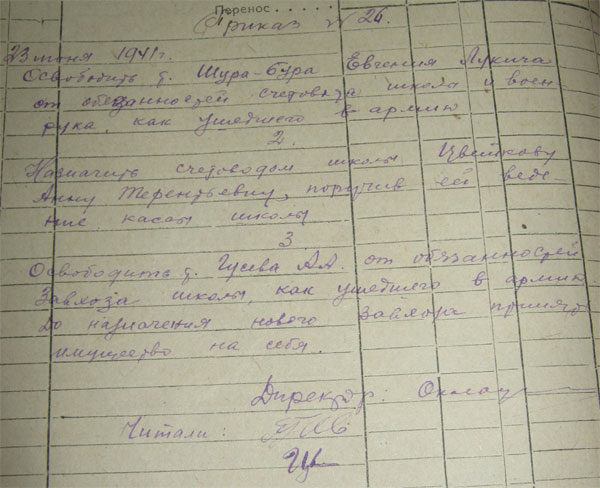 Перенос . . . . .
Приказ № 26.
23 июня 1941 г.
Освободить т. Шура-Бура Евгения Лукича
от обязанностей счетовода школы и воен
рука, как ушедшего в армию
2.
Назначить счетоводом школы Цвейкову
Анну Терентьевну, поручив ей веде
ние кассы школы
3
Освободить т. Гусева А.А. от обязанностей
Завхоза школы, как ушедшего в армию
До назначения нового завхоза принять
имущество на себя.
Директор:
Читали: